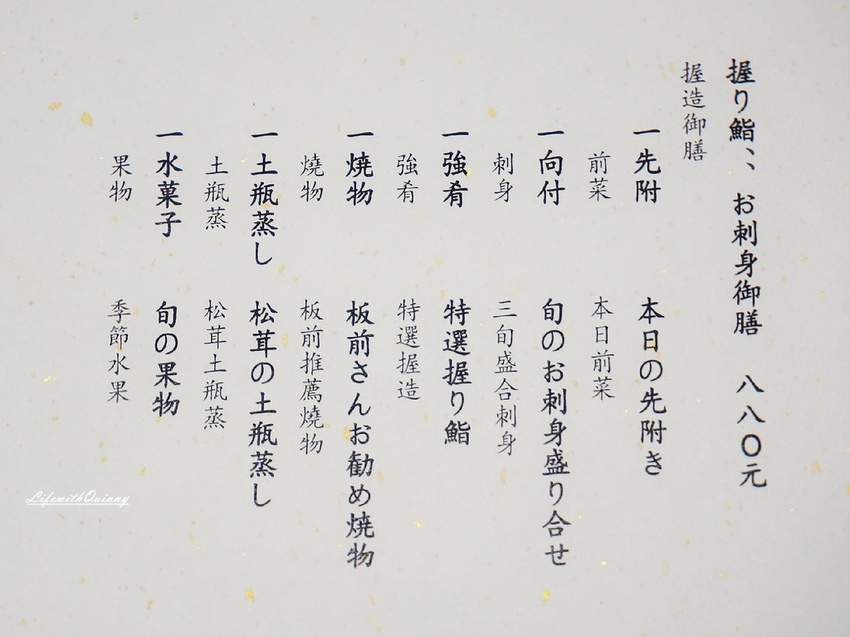 握り鮨、、お刺身御膳 八八〇元
握造御膳
一先附 本日の先附き
前菜 本日前菜
一向付 旬のお刺身盛り合せ
刺身 三旬盛合刺身
一強肴 特選握り鮨
強肴 特選握造
一焼物 板前さんお勧め焼物
燒物 板前推薦燒物
一土瓶蒸し 松茸の土瓶蒸し
土瓶蒸 松茸土瓶蒸
一水菓子 旬の果物
果物 季節水果
LifewithQuinny